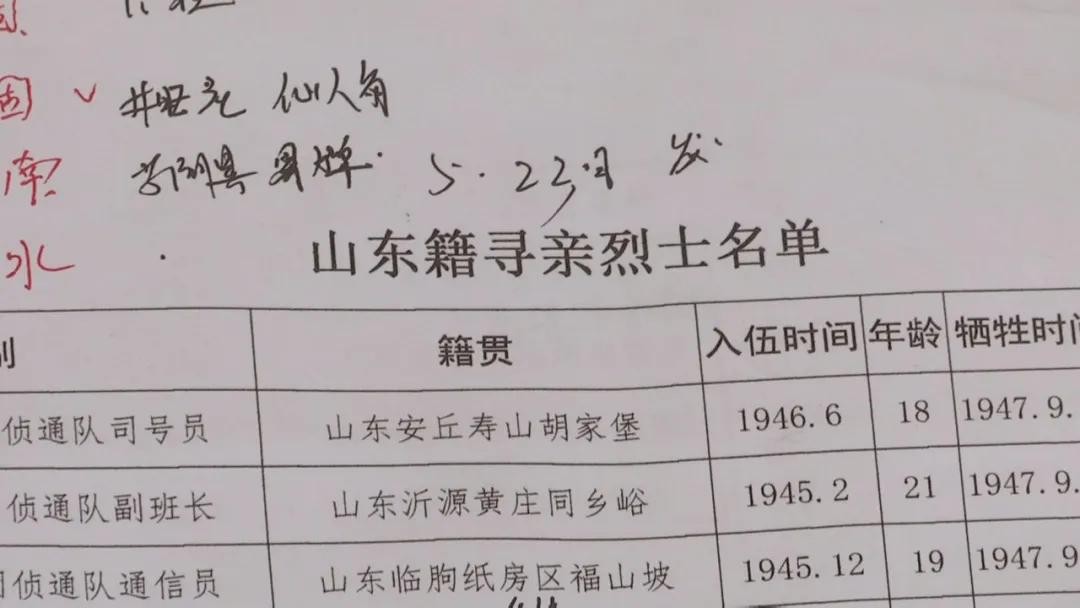 固 ✓ 仙人角
南 5.23日 发
水
山东籍寻亲烈士名单
别 籍贯 入伍时间 年龄 牺牲时间
侦通队司号员 山东安丘寿山胡家堡 1946.6 18 1947.9.
侦通队副班长 山东沂源黄庄同乡峪 1945.2 21 1947.9.
侦通队通信员 山东临朐纸房区福山坡 1945.12 19 1947.9